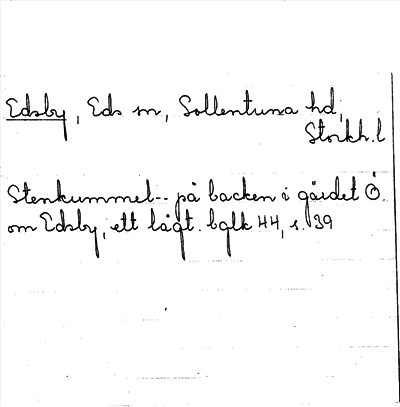 Edsby, Eds sn, Sollentuna hd,
Stockh. l
Stenkummel-- på backen i gärdet Ö.
om Edsby, ett lågt. bglk 44, s. 39